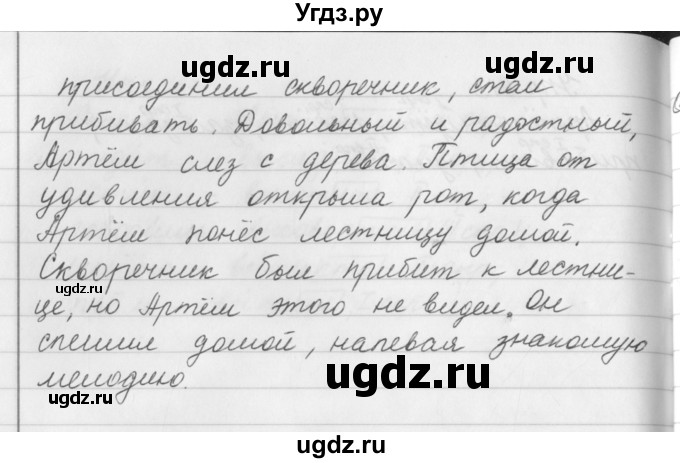 Угдз.ру
ugdz.ru ugdz.ru
присоединил скворечник, стал
прибивать. Довольный и радостный,
Артём слез с дерева. Птица от
удивления открыла рот, когда
Артём понёс лестницу домой.
Скворечник был прибит к лестни-
це, но Артём этого не видел. Он
спешил домой, напевая знакомую
мелодию.
ugdz.ru
ugdz.ru
ugdz.ru
ugdz.ru
ugdz.ru